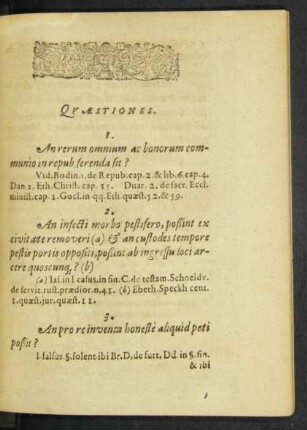 QVÆSTIONES.
1.
An rerum omnium ac bonorum com-
munio in repub ferenda sit?
Vid. Bodin. 1. de Repub. cap. 2. & lib. 6. cap. 4.
Dan 1. Eth. Christ. cap. 15. Duar. 2. de sacr. Eccl.
minist. cap. 1. Gocl. in qq. Eth. quæst. 52. & 59.
2.
An infecti morbo pestifero, possint ex
civitate removeri (a) & an custodes tempore
pestis portis oppositi, possint ab ingressu loci ar-
cere quoscunq; ? (b)
(a) Ias. in l. casus. in fin. C. de testam. Schneidv.
de servit. rust. prædior. n. 41. (b) Eberh. Speckh cent.
1. quæst. jur. quæst. 11.
3.
An pro re inventa honestè aliquid peti
possit?
l. falsus §. solent ibi Br. D. de furt. Dd. in §. fin.
& ibi